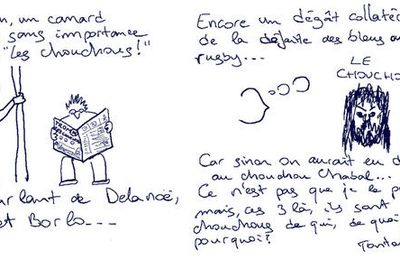 n, un canard
sans importance
"Les chouchous!"
PROMO
arlant de Delanoë,
et Borlo---
Encore un dégât collaté
de la défaite des bleus au
rugby...
LE
CHOUCHO
Car sinon on aurait eu d
au chouchou Chabal...
Ce n'est pas que je le p
mais, ces 3 là, ils sont
chouchous de qui, de quoi
pourquoi?